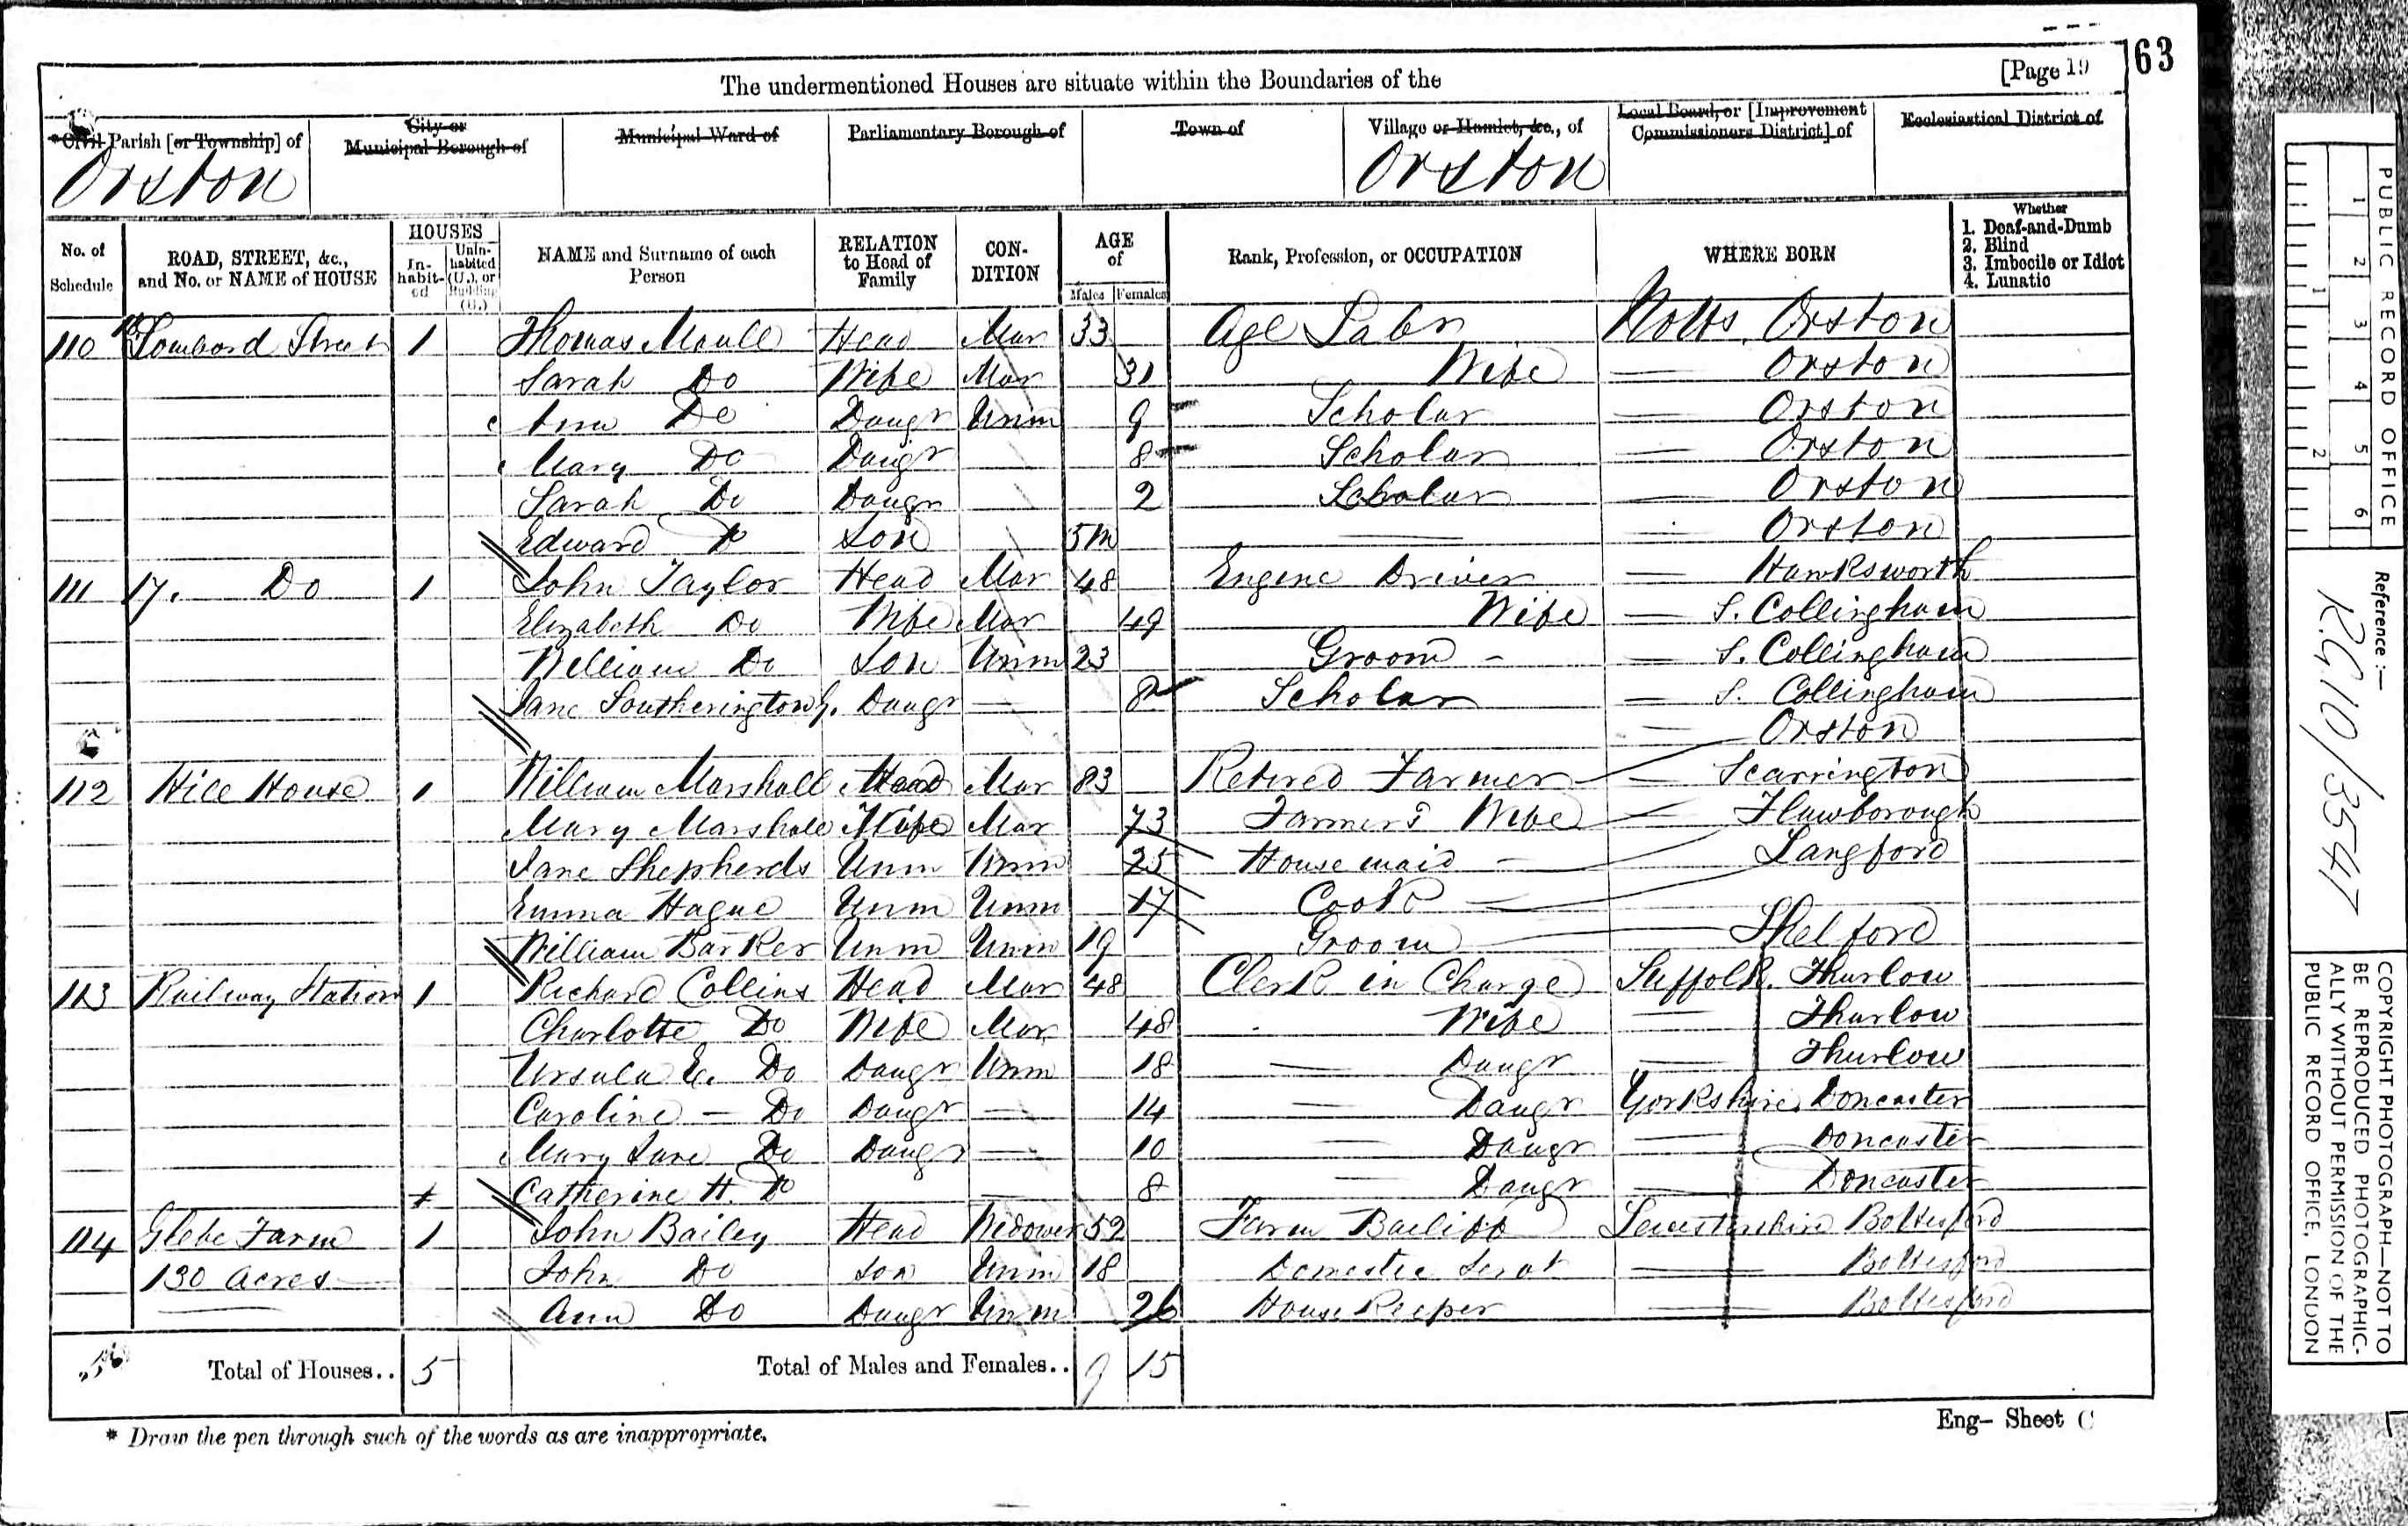 63
The undermentioned Houses are situate within the Boundaries of the [Page 19
*Civil Parish [or Township] of City or Municipal Borough of Municipal Ward of Parliamentary Borough of Town of Village or Hamlet, &c., of Local Board, or [Improvement Commissioners District] of Ecclesiastical District of
Orston Orston
No. of Schedule ROAD, STREET, &c., and No. or NAME of HOUSE HOUSES In-habit-ed Unin-habited (U.), or Building (B.) NAME and Surname of each Person RELATION to Head of Family CON-DITION AGE of Males Females Rank, Profession, or OCCUPATION WHERE BORN Whether 1. Deaf-and-Dumb 2. Blind 3. Imbecile or Idiot 4. Lunatic
110 Lombard Street 1 Thomas Maule Head Mar 33 Agl Labr Notts. Orston
Sarah Do Wife Mar 31 Wife — Orston
Ann Do Daugr Unm 9 Scholar — Orston
Mary Do Daugr 8 Scholar — Orston
Sarah Do Daugr 2 Scholar — Orston
Edward Do Son 5m — Orston
111 17. Do 1 John Taylor Head Mar 48 Engine Driver — Hawksworth
Elizabeth Do Wife Mar 49 Wife — S. Collingham
William Do Son Unm 23 Groom — S. Collingham
Jane Southerington G. Daugr — 8 Scholar — S. Collingham
— Orston
112 Hill House 1 William Marshall Head Mar 83 Retired Farmer — Scarrington
Mary Marshall Wife Mar 73 Farmer's Wife — Flawborough
Jane Shepherds Unm Unm 25 House maid — Langford
Emma Hague Unm Unm 17 Cook —
William Barker Unm Unm 19 Groom — Shelford
113 Railway Station 1 Richard Collins Head Mar 48 Clerk in Charge Suffolk. Thurlow
Charlotte Do Wife Mar 48 Wife — Thurlow
Ursula E. Do Daugr Unm 18 — Daugr — Thurlow
Caroline — Do Daugr — 14 — Daugr Yorkshire. Doncaster
Mary Jane Do Daugr — 10 — Daugr — Doncaster
Catherine H. Do — 8 — Daugr — Doncaster
114 Glebe Farm 1 John Bailey Head Widower 52 Farm Bailiff Leicestershire Bottesford
130 Acres John Do Son Unm 18 Domestic Servt — Bottesford
Ann Do Daugr Unm 26 House Keeper — Bottesford
Total of Houses.. 5 Total of Males and Females.. 9 15
* Draw the pen through such of the words as are inappropriate.
Eng— Sheet C
PUBLIC RECORD OFFICE
1 2 3 4 5 6
1 2
Reference :—
R.G. 10/3547
COPYRIGHT PHOTOGRAPH—NOT TO
BE REPRODUCED PHOTOGRAPHIC-
ALLY WITHOUT PERMISSION OF THE
PUBLIC RECORD OFFICE, LONDON